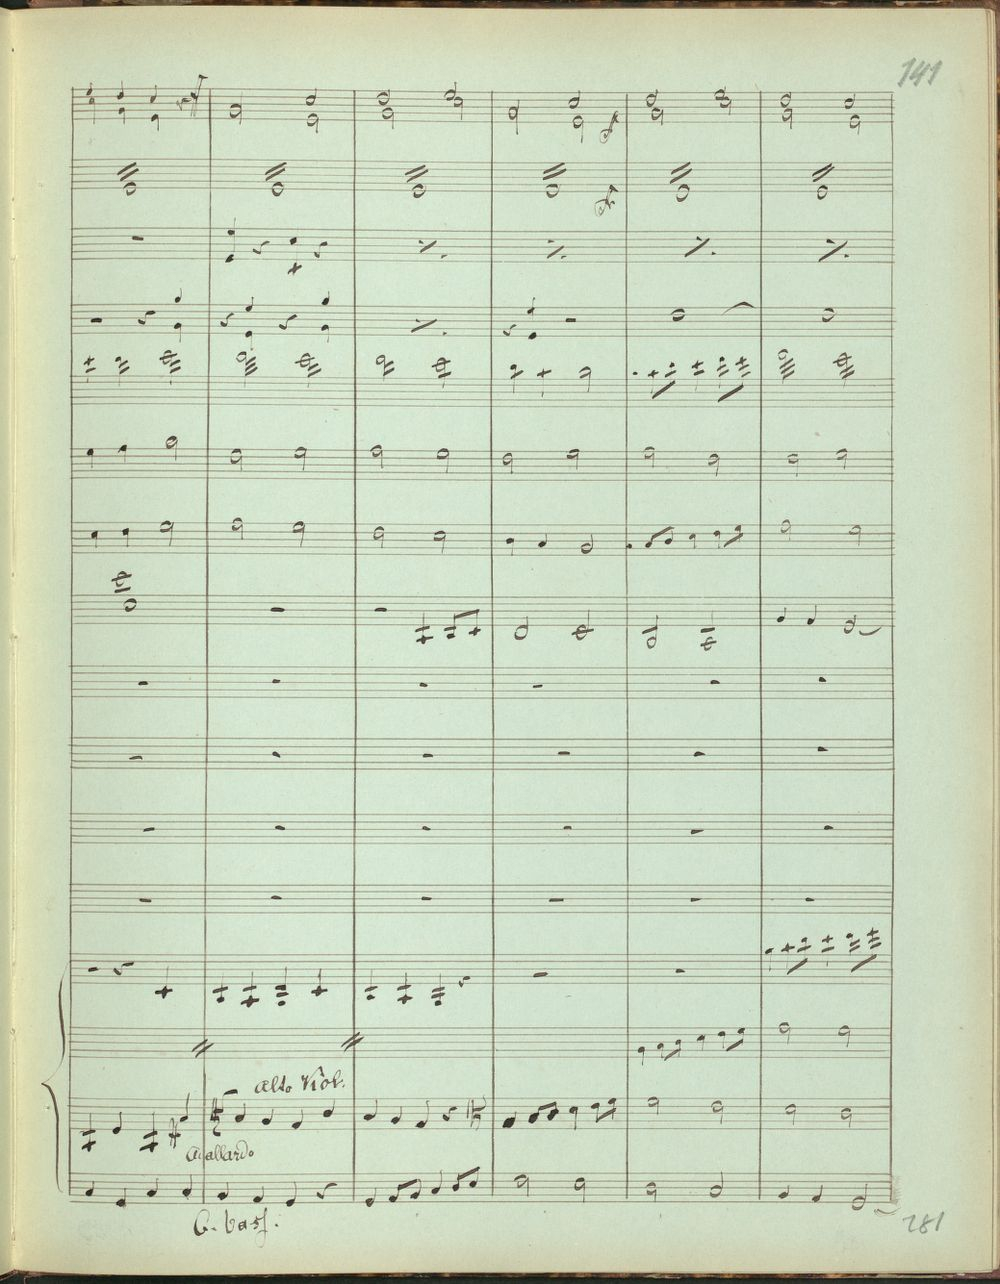 141
Alto Viol.
C. bass.
281